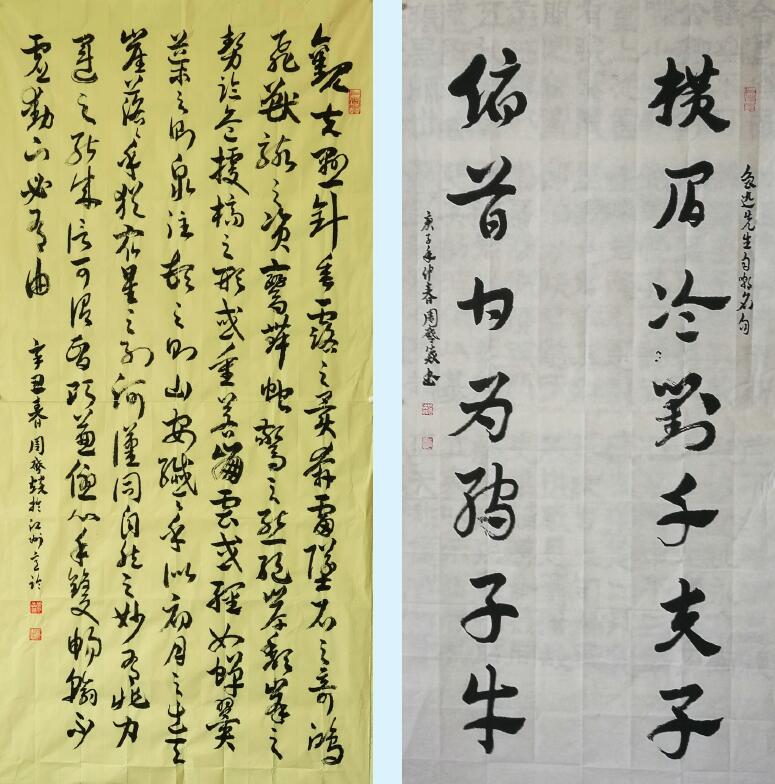 觀夫懸針垂露之異奔雷墜石之奇鴻
飛獸駭之資鸞舞蛇驚之態絕岸頹峯之
勢臨危據槁之形或重若崩雲或輕如蟬翼
導之則泉注頓之則山安纖々乎似初月之出天
崖落々乎猶衆星之列河漢同自然之妙有非力
運之能成信可謂智巧兼優心手雙暢翰不
虛動下必有由
辛丑春周於江州
魯迅先生自嘲名句
橫眉冷對千夫子
俯首甘为孺子牛
庚子年仲春周書